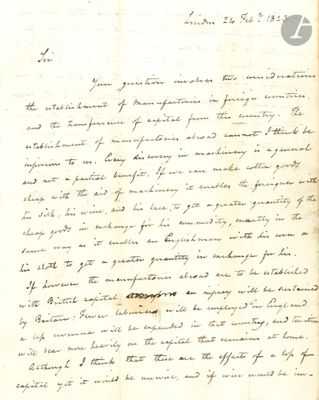 London 24 Feb.y 1823
Sir
Your question involves two considerations
the establishment of manufactories in foreign countries
and the transference of capital from this country. The
establishment of manufactories abroad cannot I think be
injurious to us. Every discovery in machinery is a general
and not a partial benefit. If we can make cotton goods
cheap with the aid of machinery it enables the foreigner with
his silk, his wine, and his lace, to get a greater quantity of the
cheap goods in exchange for his commodity, exactly in the
same way as it enables an Englishman with his corn or
his cloth to get a greater quantity in exchange for his.
If however the manufactories abroad are to be established
with British capital, an injury will be sustained
by Britain; Fewer labourers will be employed in England
a less revenue will be expended in that country, and taxation
will bear more heavily on the capital that remains at home.
Although I think that these are the effects of a loss of
capital yet it would be unwise, and if wise would be im-